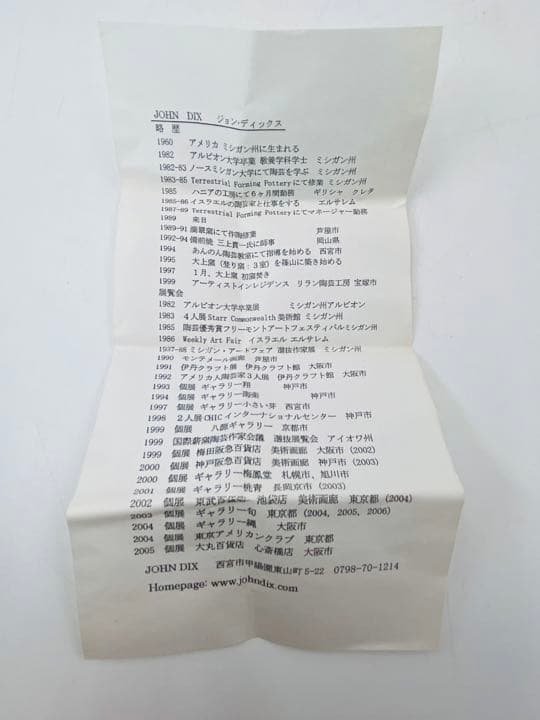 JOHN DIX ジョン・ディックス
略歴
1960 アメリカ ミシガン州に生まれる
1982 アルビオン大学卒業 教養学科学士 ミシガン州
1982-83 ノースミシガン大学にて陶芸を学ぶ ミシガン州
1983-85 Terrestrial Forming Potteryにて修業 ミシガン州
1985 ハニアの工房にて6ヶ月間勤務 ギリシャ クレタ
1985-86 イスラエルの陶芸家と仕事をする エルサレム
1987-89 Terrestrial Forming Potteryにてマネージャー勤務
1989 来日
1989-91 にて作陶修業 芦屋市
1992-94 備前焼 三上貴一氏に師事 岡山県
1994 あんのん陶芸教室にて指導を始める 西宮市
1995 大上窯（登り窯：3室）を篠山に築き始める
1997 1月、大上窯 初窯焚き
1999 アーティストインレジデンス リラン陶芸工房 宝塚市
展覧会
1982 アルビオン大学卒業展 ミシガン州アルビオン
1983 4人展 Starr Commonwealth 美術館 ミシガン州
1985 陶芸優秀賞フリーモントアートフェスティバルミシガン州
1986 Weekly Art Fair イスラエル エルサレム
1937-88 ミシガン・アートフェア 選抜作家展 ミシガン州
1990 モンテメール画廊 芦屋市
1991 伊丹クラフト展 伊丹クラフト館 大阪市
1992 アメリカ人陶芸家3人展 伊丹クラフト館 大阪市
1993 個展 ギャラリー翔 神戸市
1994 個展 ギャラリー陶楽 神戸市
1997 個展 ギャラリー小さい芽 西宮市
1998 2人展CHICインターナショナルセンター 神戸市
1999 個展 八源ギャラリー 京都市
1999 国際薪窯陶芸作家会議 選抜展覧会 アイオワ州
1999 個展 梅田阪急百貨店 美術画廊 大阪市（2002）
2000 個展 神戸阪急百貨店 美術画廊 神戸市（2003）
2000 個展 ギャラリー梅鳳堂 札幌市、旭川市
2001 個展 ギャラリー桃青 長岡京市（2003）
2002 個展 東武百貨店 池袋店 美術画廊 東京都（2004）
2003 個展 ギャラリー旬 東京都（2004, 2005, 2006）
2004 個展 ギャラリー縄 大阪市
2004 個展 東京アメリカンクラブ 東京都
2005 個展 大丸百貨店 心斎橋店 大阪市
JOHN DIX 西宮市甲陽園東山町5-22 0798-70-1214
Homepage: www.johndix.com